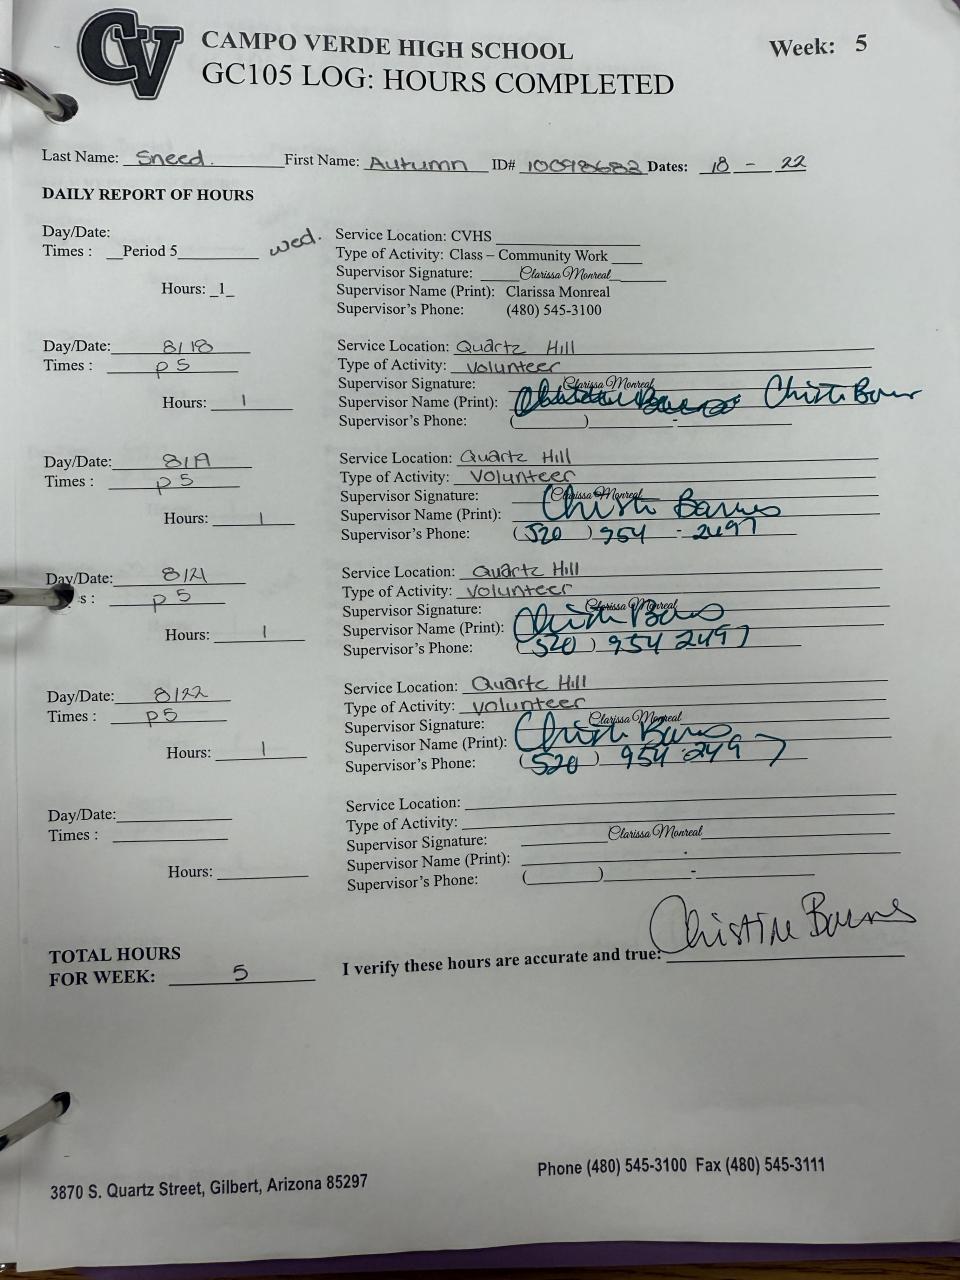 CV
CAMPO VERDE HIGH SCHOOL
Week: 5
GC105 LOG: HOURS COMPLETED
Last Name: Sneed. First Name: Autumn ID# 10098682 Dates: 18 - 22
DAILY REPORT OF HOURS
Day/Date:
Times : Period 5
wed.
Hours: 1
Service Location: CVHS
Type of Activity: Class – Community Work
Supervisor Signature: Clarissa Monreal
Supervisor Name (Print): Clarissa Monreal
Supervisor's Phone: (480) 545-3100
Day/Date: 8/18
Times : P5
Hours: 1
Service Location: Quartz Hill
Type of Activity: Volunteer
Supervisor Signature: Clarissa Monreal
Supervisor Name (Print): Christi Barnes
Supervisor's Phone: ( ) -
Day/Date: 8/19
Times : P5
Hours: 1
Service Location: Quartz Hill
Type of Activity: Volunteer
Supervisor Signature: Clarissa Monreal
Supervisor Name (Print): Christi Barnes
Supervisor's Phone: (520) 954 - 2497
Day/Date: 8/21
s : P5
Hours: 1
Service Location: Quartz Hill
Type of Activity: Volunteer
Supervisor Signature: Clarissa Monreal
Supervisor Name (Print): Christi Barnes
Supervisor's Phone: (520) 954 2497
Day/Date: 8/22
Times : P5
Hours: 1
Service Location: Quartz Hill
Type of Activity: Volunteer
Supervisor Signature: Clarissa Monreal
Supervisor Name (Print): Christi Barnes
Supervisor's Phone: (520) 954 2497
Day/Date:
Times :
Hours:
Service Location:
Type of Activity:
Supervisor Signature: Clarissa Monreal
Supervisor Name (Print):
Supervisor's Phone: ( ) -
TOTAL HOURS
FOR WEEK: 5
I verify these hours are accurate and true: Christine Barnes
3870 S. Quartz Street, Gilbert, Arizona 85297
Phone (480) 545-3100 Fax (480) 545-3111